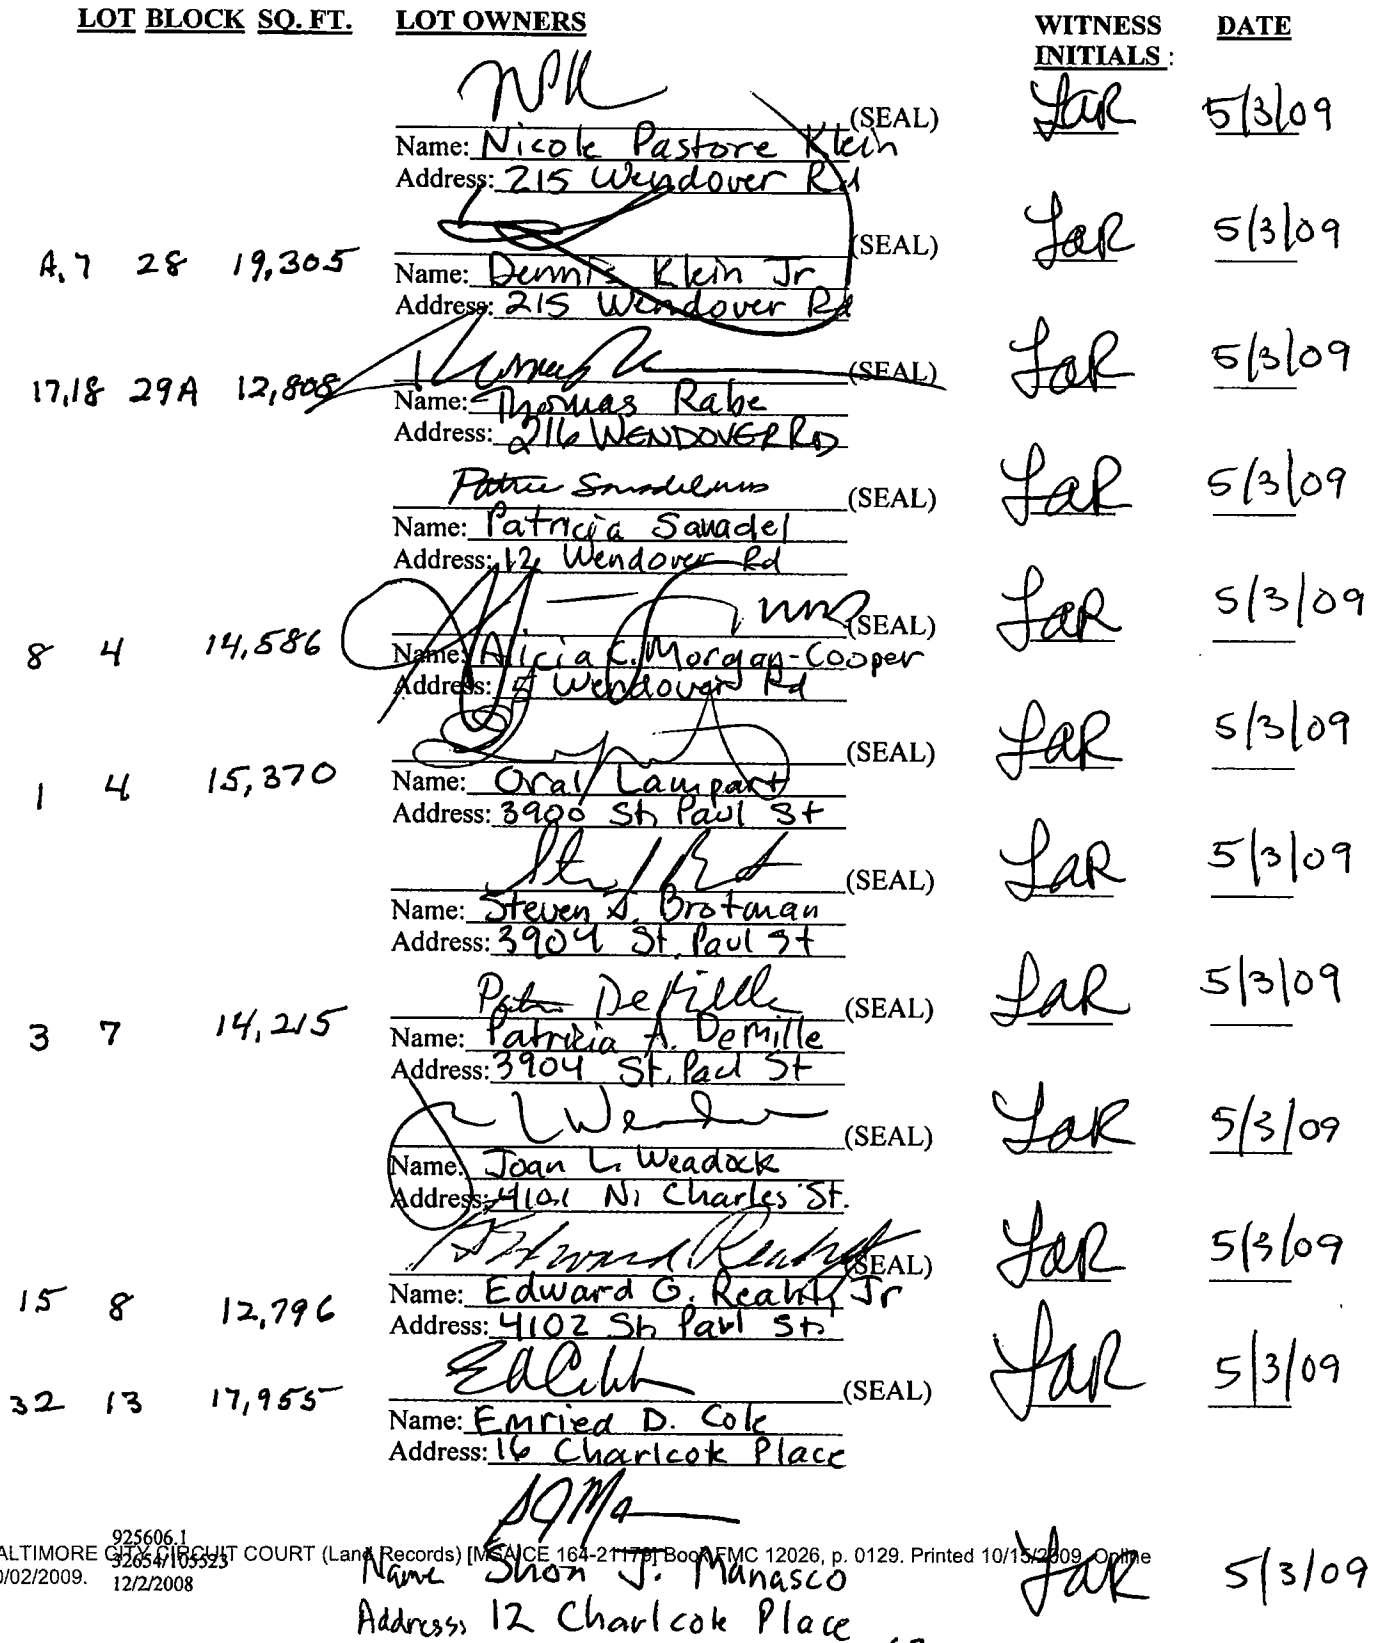 LOT BLOCK SQ. FT. LOT OWNERS WITNESS INITIALS : DATE
NPK (SEAL) LaR 5/3/09
Name: Nicole Pastore Klein
Address: 215 Wendover Rd
(SEAL) LaR 5/3/09
A, 7 28 19,305
Name: Dennis Klein Jr
Address: 215 Wendover Rd
(SEAL) LaR 5/3/09
17,18 29A 12,808
Name: Thomas Rabe
Address: 216 WENDOVER RD
(SEAL) LaR 5/3/09
Name: Patricia Sanadel
Address: 12 Wendover Rd
(SEAL) LaR 5/3/09
8 4 14,586
Name: Alicia C. Morgan-Cooper
Address: 5 Wendover Rd
(SEAL) LaR 5/3/09
1 4 15,370
Name: Oral Lampart
Address: 3900 St. Paul St
(SEAL) LaR 5/3/09
Name: Steven S. Brotman
Address: 3904 St. Paul St
Patr DeMille (SEAL) LaR 5/3/09
3 7 14,215
Name: Patricia A. DeMille
Address: 3904 St. Paul St
(SEAL) LaR 5/3/09
Name: Joan L. Weadock
Address: 4101 N. Charles St.
(SEAL) LaR 5/3/09
15 8 12,796
Name: Edward G. Jr
Address: 4102 St. Paul St.
(SEAL) LaR 5/3/09
32 13 17,955
Name: Emried D. Cole
Address: 16 Charlcote Place
SJMa
925606.1
BALTIMORE CITY CIRCUIT COURT (Land Records) [MSA CE 164-21179] Book FMC 12026, p. 0129. Printed 10/15/2009. Online
32654/105523
0/02/2009. 12/2/2008
Name Shon J. Manasco LaR 5/3/09
Address: 12 Charlcote Place